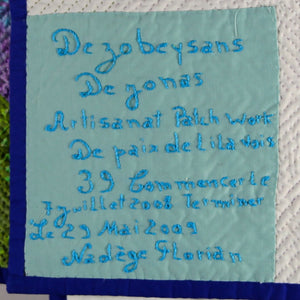 Dezobeysans
De zonas
Artisanat Patch work
De pain de lila
39 Commencerle
7 juillet 2008 Terminer
Le 29 Mai 2009
Nadège Florian